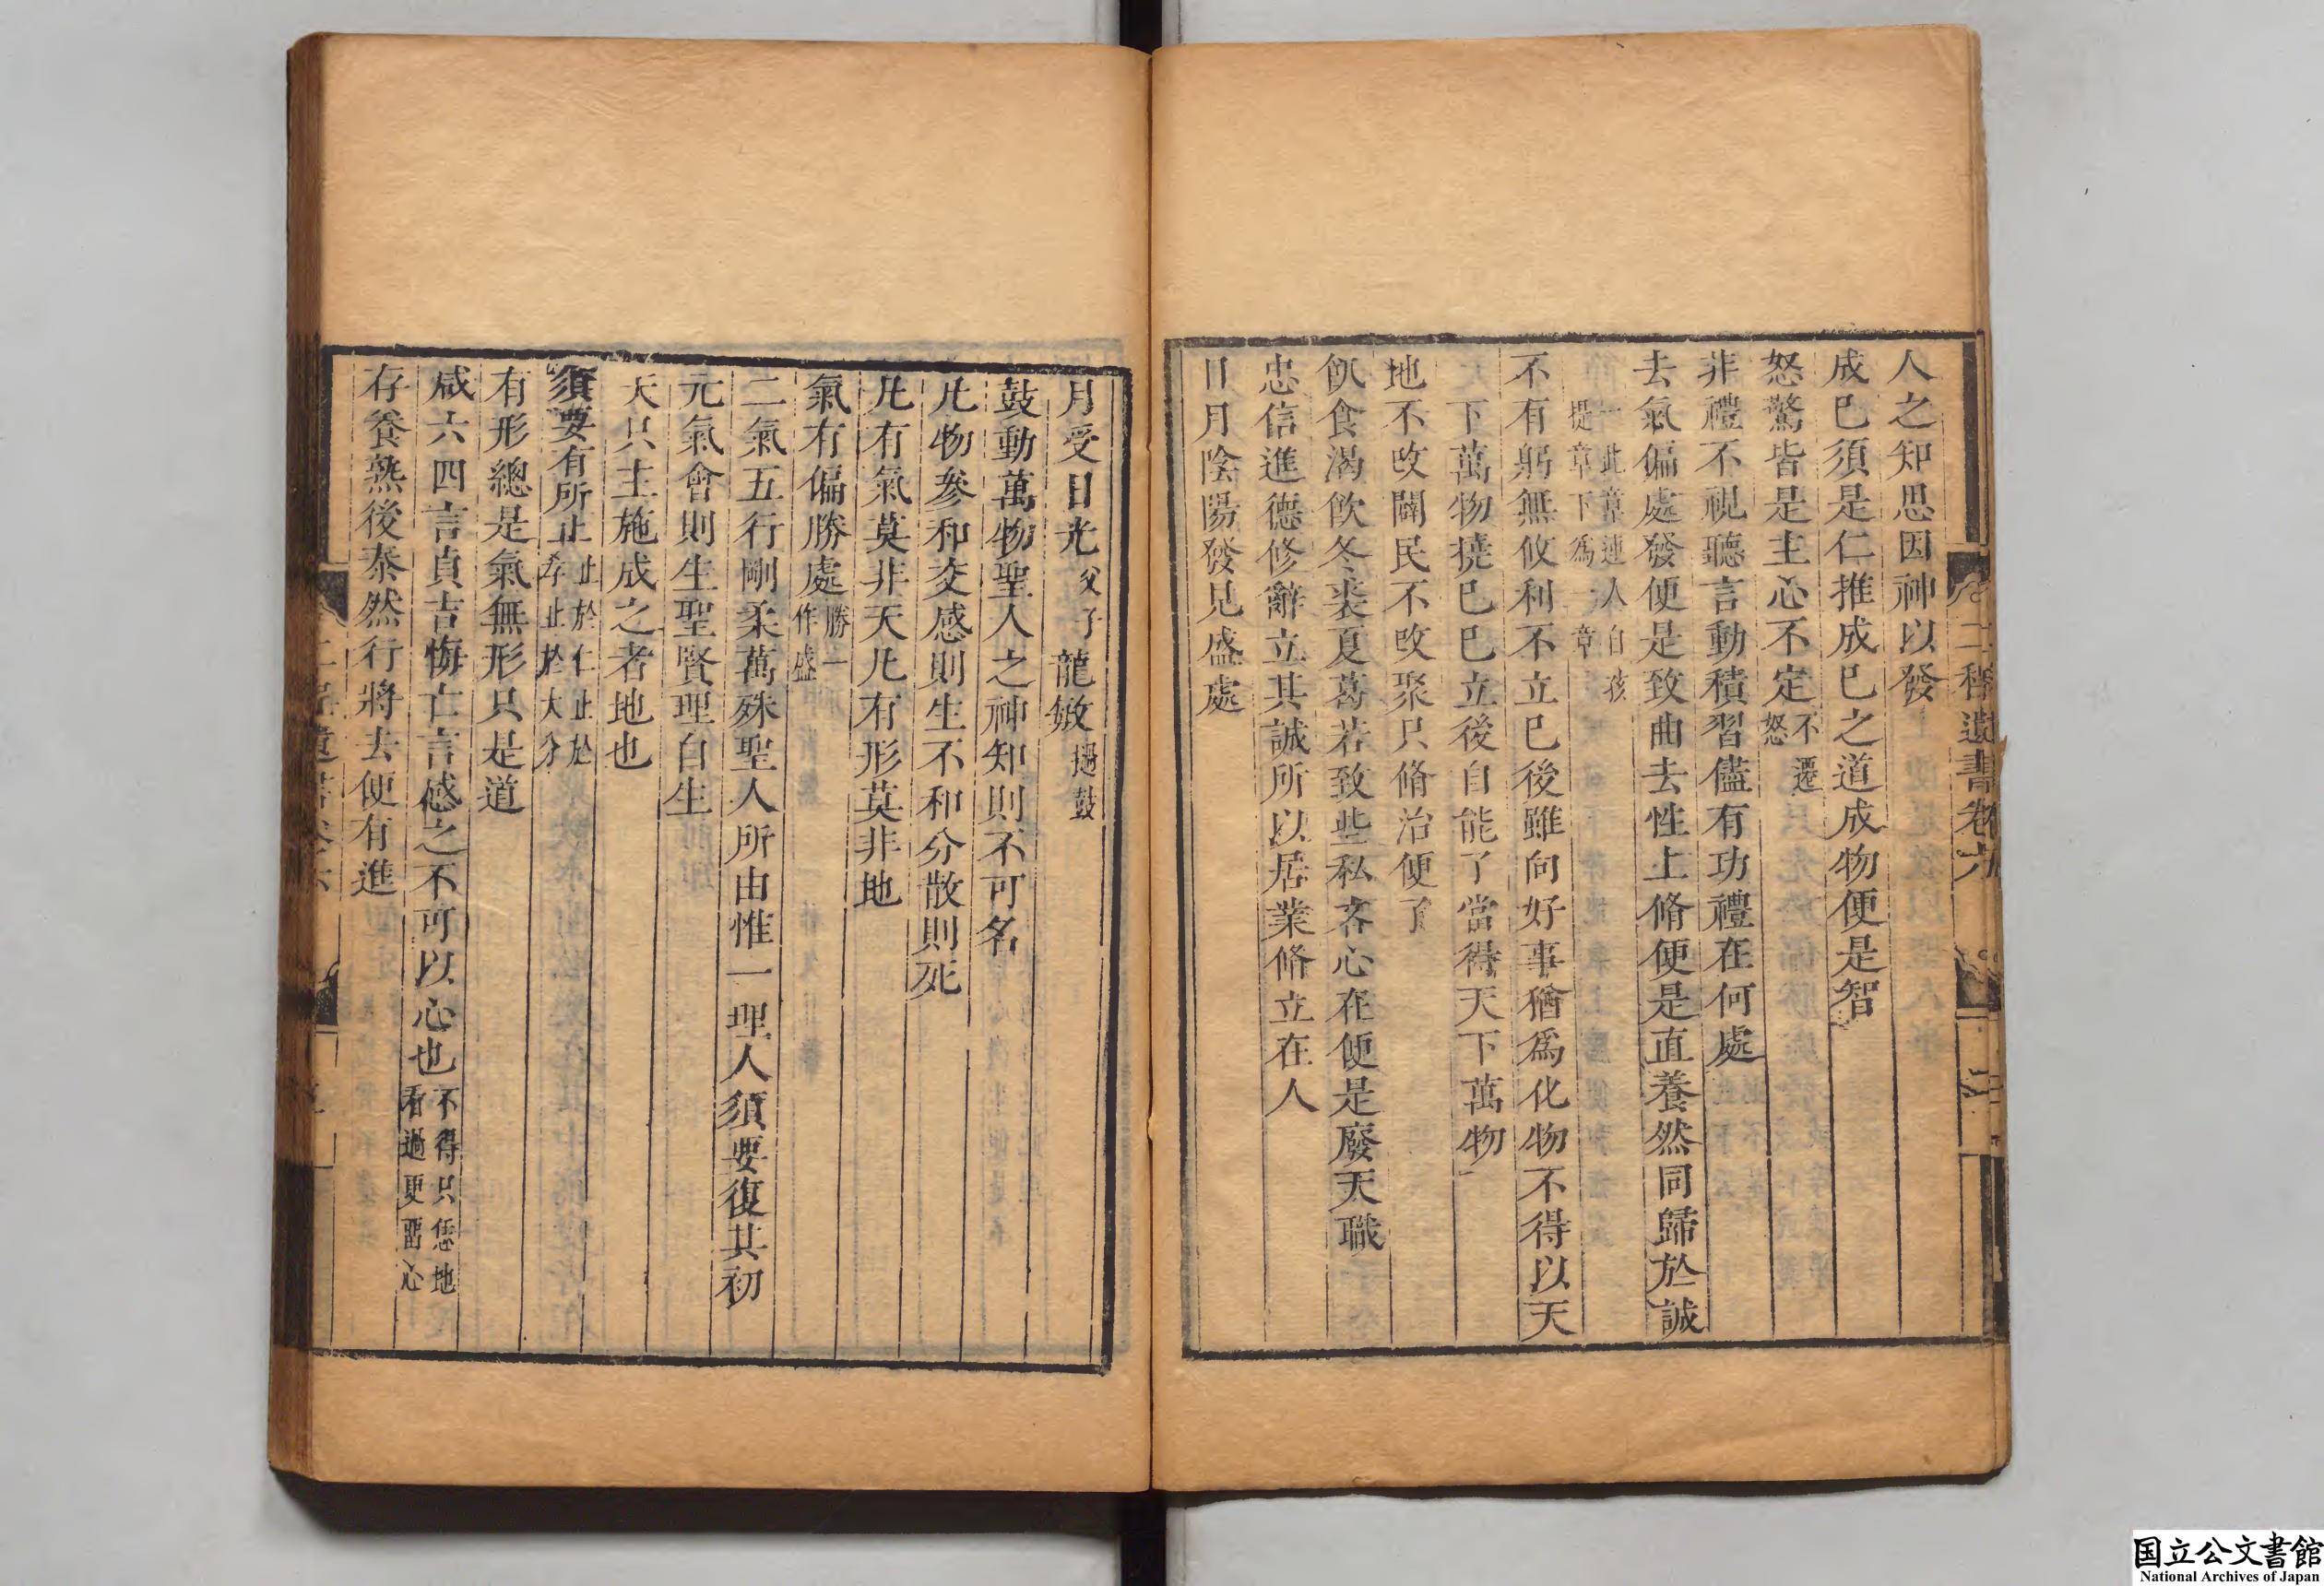 二程遺書卷六
人之知思因神以發
成已須是仁推成已之道成物便是智
怒驚皆是主心不定不遷怒
非禮不視聽言動積習儘有功禮在何處
去氣偏處發便是致曲去性上脩便是直養然同歸於誠
一此章連人自孩
提章下爲一章
不有躬無攸利不立已後雖向好事猶爲化物不得以天
下萬物撓已已立後自能了當得天下萬物
地不改闢民不改聚只脩治便了
飢食渴飲冬裘夏葛若致些私吝心在便是廢天職
忠信進德修辭立其誠所以居業脩立在人
日月陰陽發見盛處
月受日光父子龍敏過鼓
鼓動萬物聖人之神知則不可名
凡物參和交感則生不和分散則死
凡有氣莫非天凡有形莫非地
氣有偏勝處勝一作盛
二氣五行剛柔萬殊聖人所由惟一理人須要復其初
元氣會則生聖賢理自生
天只主施成之者地也
須要有所止止於仁止於孝止於大分
有形總是氣無形只是道
咸六四言貞吉悔亡言感之不可以心也不得只恁地看過更留心
存養熟後泰然行將去便有進
国立公文書館
National Archives of Japan